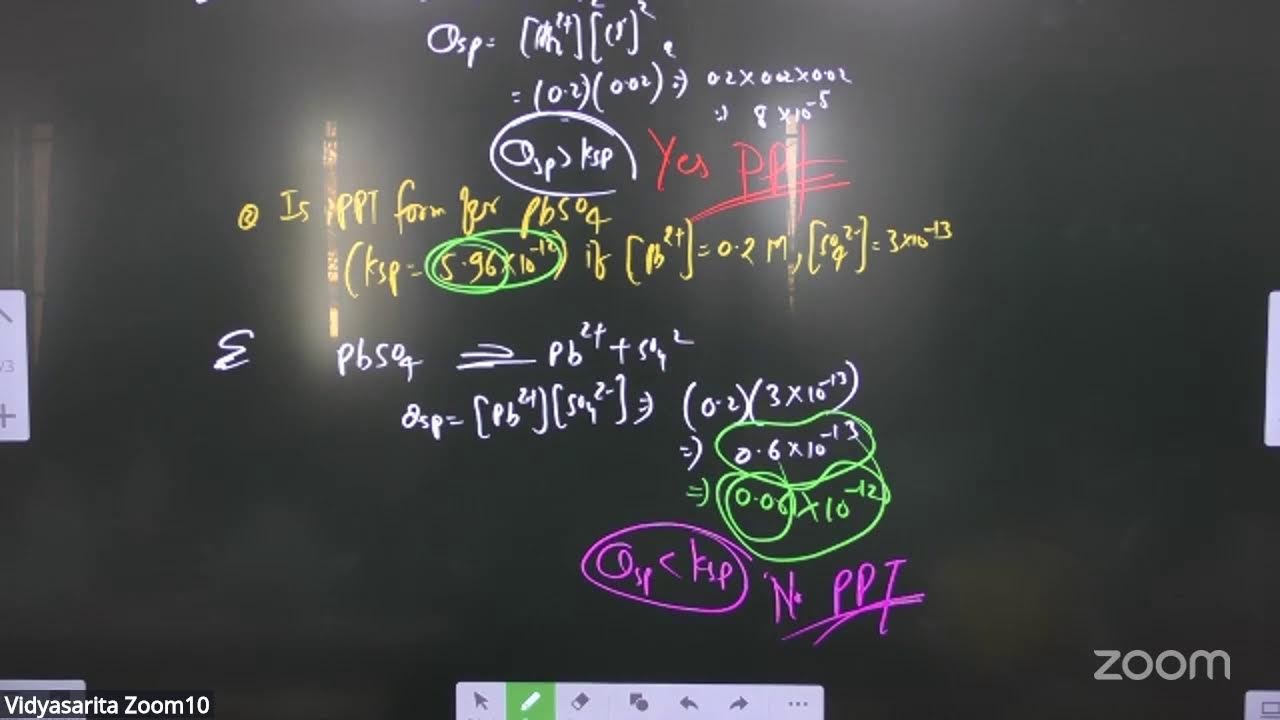 Qsp = [Pb²⁺][Cl⁻]²
= (0.2)(0.02)² ⇒ 0.2×0.02×0.02
⇒ 8×10⁻⁵
Qsp > Ksp Yes PPT
Q Is PPT form for PbSO₄
(Ksp = 5.96×10⁻¹²) if [Pb²⁺] = 0.2 M, [SO₄²⁻] = 3×10⁻¹³
PbSO₄ ⇌ Pb²⁺ + SO₄²
Qsp = [Pb²⁺][SO₄²⁻] ⇒ (0.2)(3×10⁻¹³)
⇒ 0.6×10⁻¹³
⇒ 0.06×10⁻¹²
Qsp < Ksp No PPT
zoom
Vidyasarita Zoom10